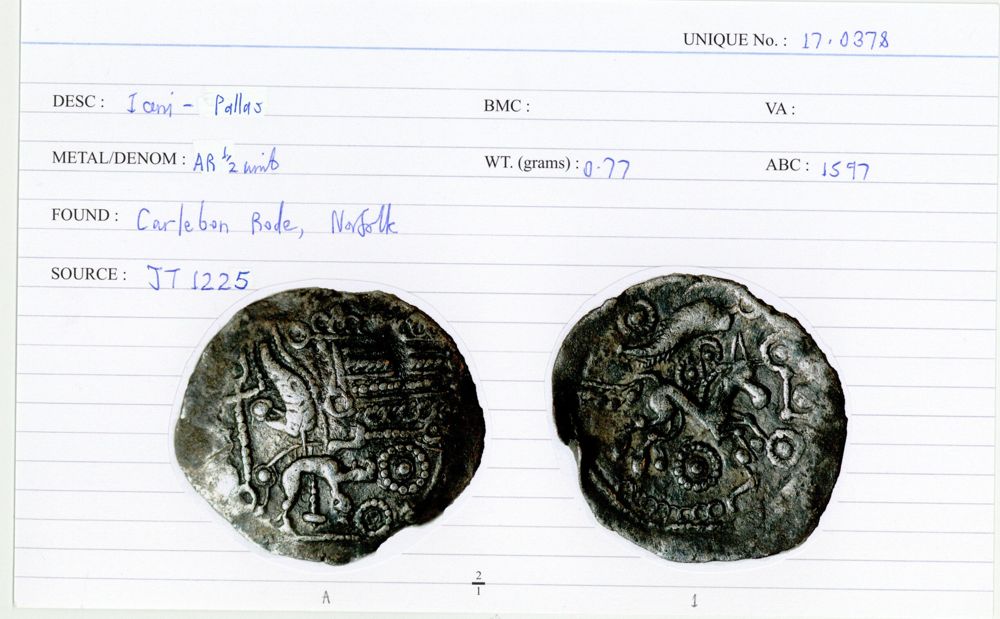 UNIQUE No. : 17.0378
DESC : Iceni - Pallas BMC : VA :
METAL/DENOM : AR ½ unit WT. (grams) : 0.77 ABC : 1597
FOUND : Carleton Rode, Norfolk
SOURCE : JT 1225
2
1
A 1